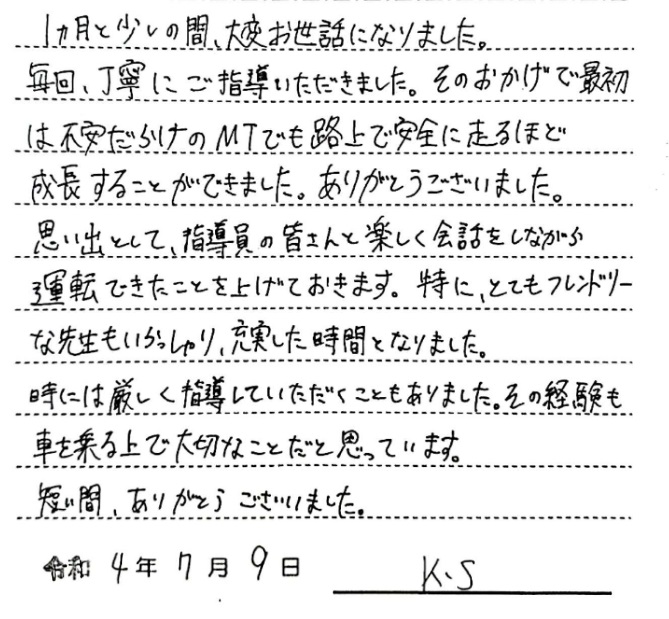 1ヵ月と少しの間、大変お世話になりました。
毎回、丁寧にご指導いただきました。そのおかげで最初
は不安だらけのMTでも路上で安全に走るほど
成長することができました。ありがとうございました。
思い出として、指導員の皆さんと楽しく会話をしながら
運転できたことを上げておきます。特に、とてもフレンドリー
な先生もいらっしゃり、充実した時間となりました。
時には厳しく指導していただくこともありました。その経験も
車を乗る上で大切なことだと思っています。
短い間、ありがとうございました。
令和 4年 7月 9日 K.S